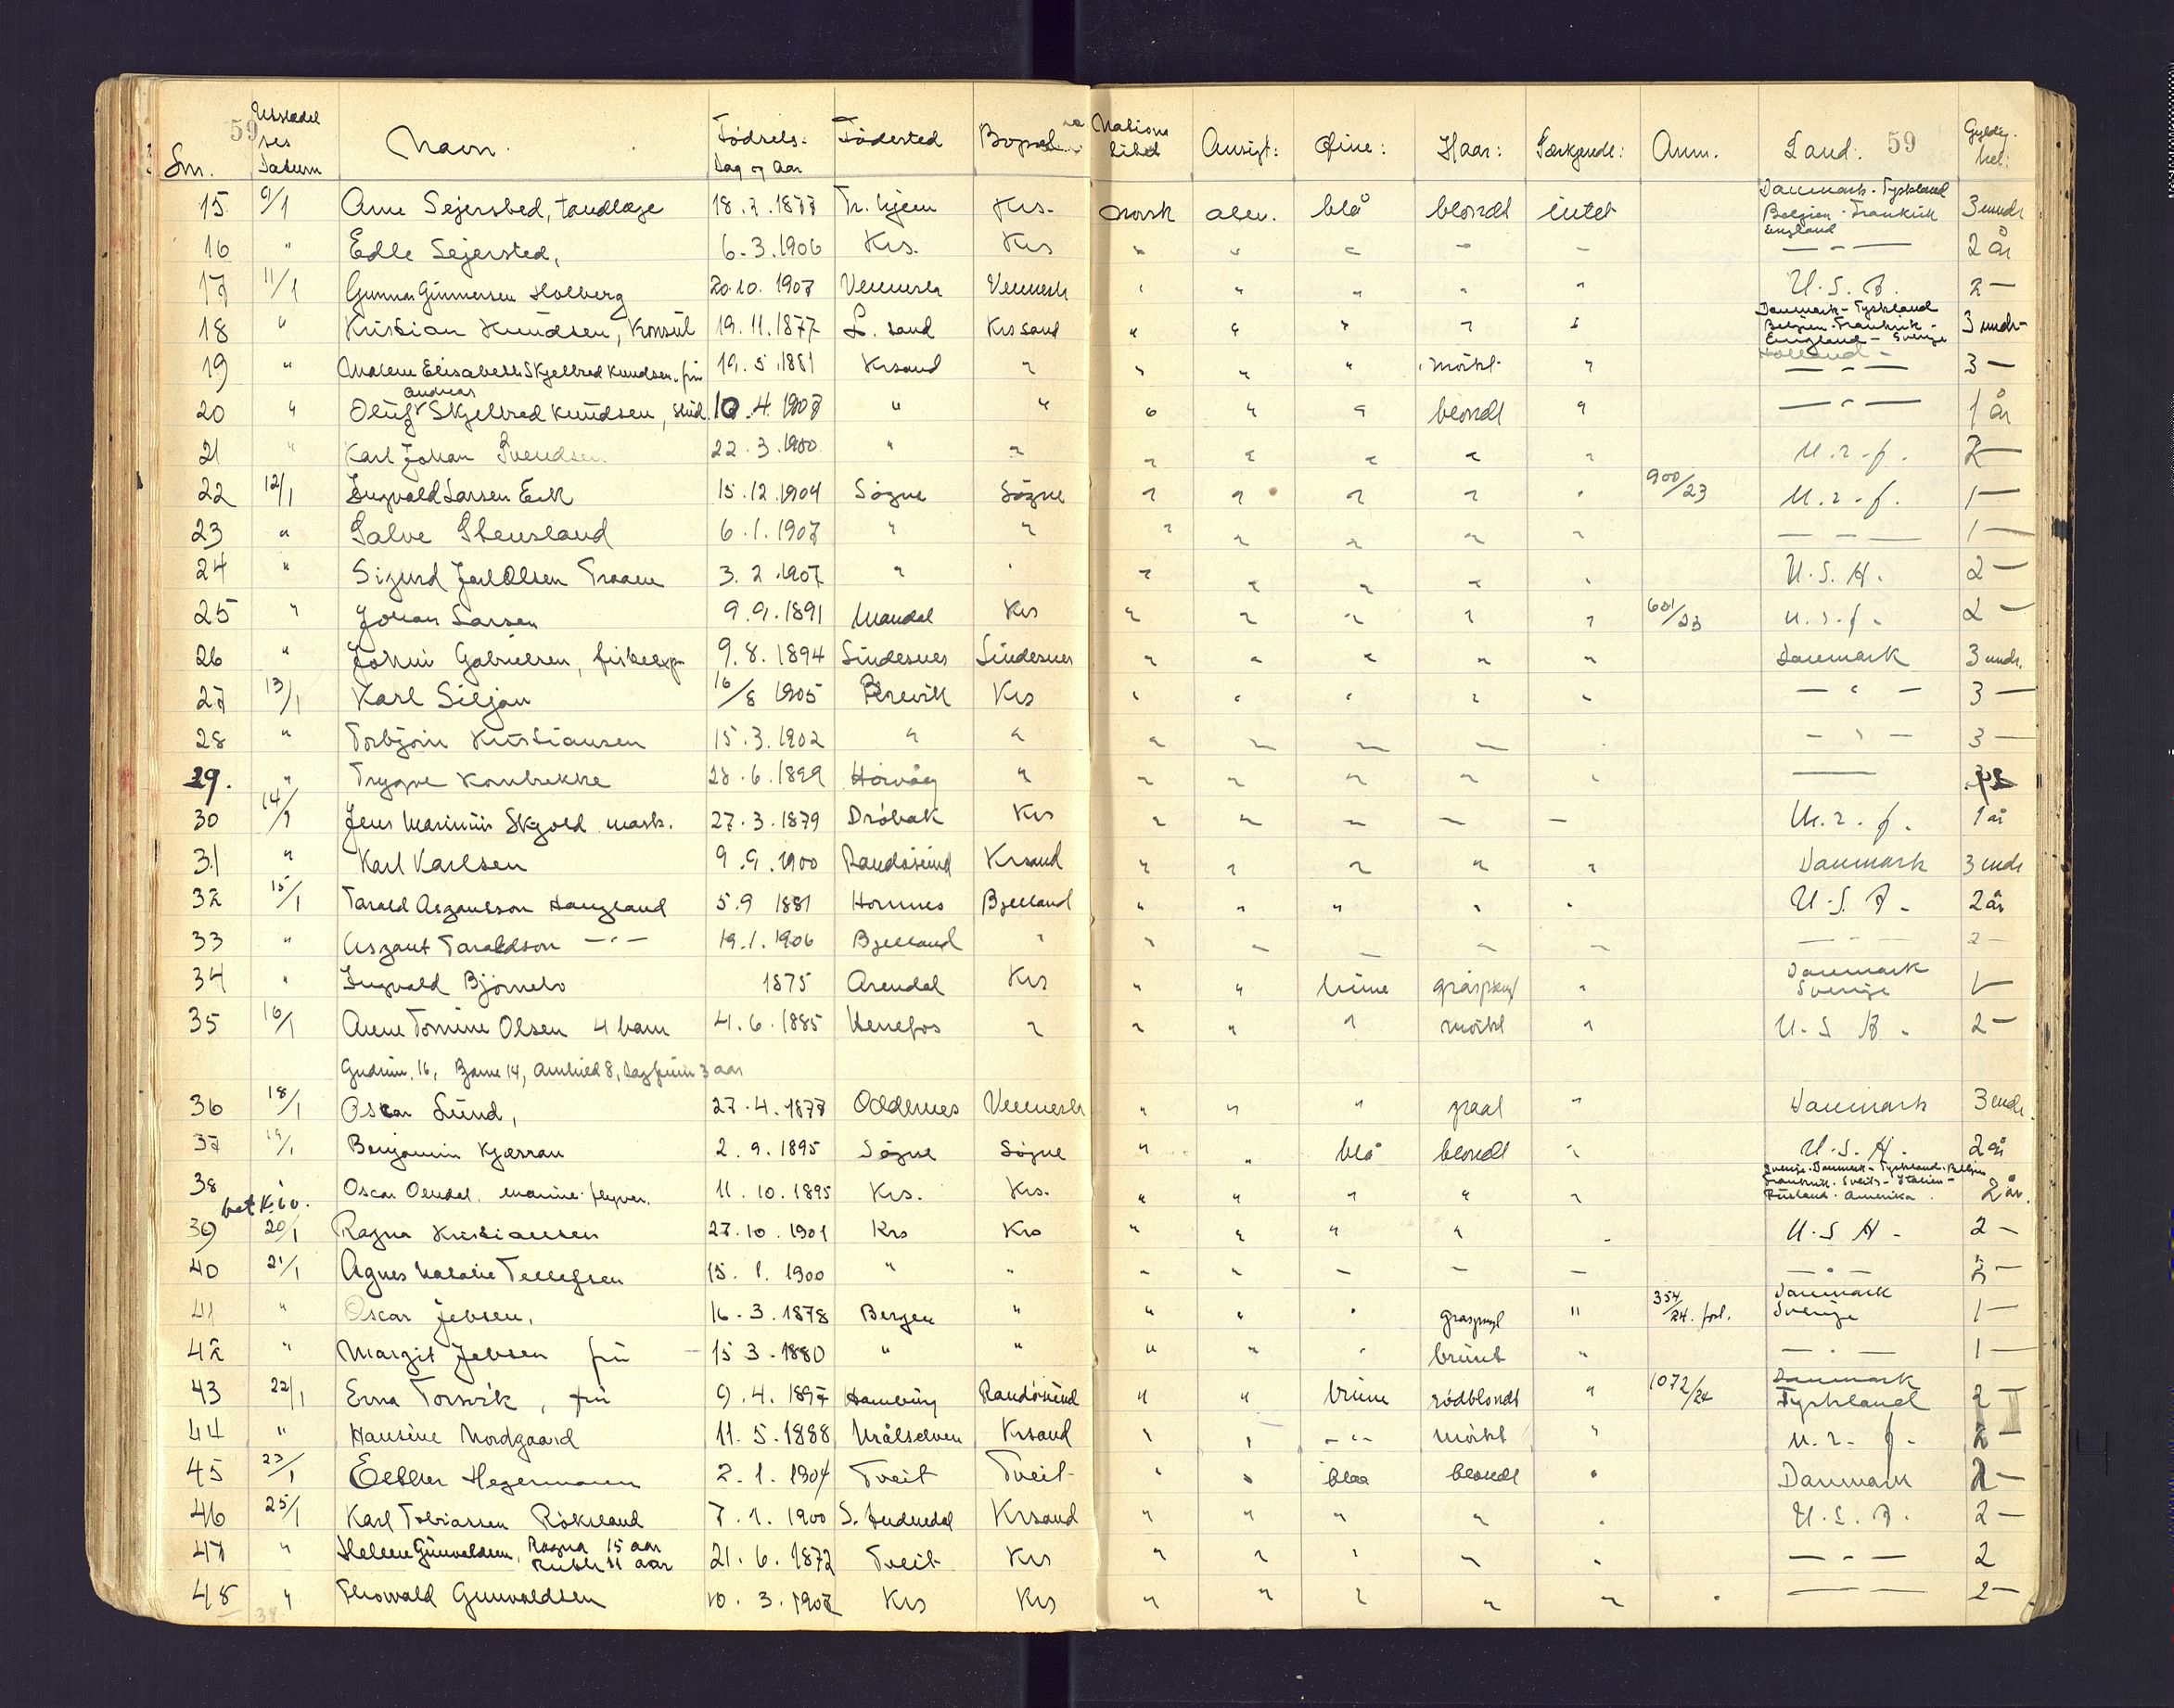 59
Nr. Utstedelses Datum Navn. Fødsels- Dag og Aar Fødested Bopæl Nationalitet Ansigt: Øine: Haar: Særkjende: Anm. Land: 59 Gyldighet:
15 9/1 Arne Sejersted, tandlæge 18.7.1877 Tr.hjem Krs. norsk alm. blå blondt intet Danmark - Tyskland Belgien - Frankrik England 3 mndr
16 " Edle Sejersted, 6.3.1906 Krs. Krs " " " " " — " — 2 år
17 11/1 Gunnar Gunnersen Holberg 20.10.1907 Vennesla Vennesla " " " " " U.S.A. 2 —
18 " Kristian Knudsen, Konsul 19.11.1877 L. sand Krssand " " " " " Danmark - Tyskland Belgien - Frankrik - England - Sverige Holland - 3 mndr
19 " Malene Elisabeth Skjelbred Knudsen, frü 19.5.1881 Krsand " " " " mörkt " — " — 3 —
20 " Oluf Andreas Skjelbred Knudsen, stud. 10.4.1907 " " " " " blondt " — " — 1 år
21 " Karl Johan Svendsen 22.3.1900 " " " " " " " U.r.f. 2 —
22 12/1 Ingvald Larsen Eik 15.12.1904 Søgne Søgne " " " " " 900/23 U.r.f. 1 —
23 " Salve Stensland 6.1.1907 " " " " " " " — — — 1 —
24 " Sigurd Jarl Olsen Traaen 3.2.1907 " " " " " " " U.S.A. 2 —
25 " Johan Larsen 9.9.1891 Mandal Krs " " " " " 601/23 U.r.f. 2 —
26 " Johni Gabrielsen, fiskeexp. 9.8.1894 Lindesnes Lindesnes " " " " " Danmark 3 mndr.
27 13/1 Karl Siljan 16/8 1905 Brevik Krs " " " " " — " — 3 —
28 " Torbjörn Kristiansen 15.3.1902 " " " " " " " — " — 3 —
29. " Trygve Kornbrekke 28.6.1899 Hövåg " " " " " " ——
30 14/1 Jens Marinius Skjold mask. 27.3.1879 Dröbak Krs " " " " " U.r.f. 1 år
31 " Karl Karlsen 9.9.1900 Randösund Krsand " " " " " Danmark 3 mndr
32 15/1 Tarald Asgautson Haugland 5.9 1881 Hornnes Bjelland " " " " " U.S.A. 2 år
33 " Asgaut Taraldson — " — 19.1.1906 Bjelland " " " " " " — " — 2 —
34 " Ingvald Björnebo 1875 Arendal Krs " " brüne gråsprengt " Danmark Sverige 1 —
35 16/1 Anne Tomine Olsen 4 barn 4.6.1885 Henefos " " " " mörkt " U.S.A. 2 —
Gudrün 16, Bjarne 14, Arnhild 8, Dagfinn 3 aar
36 18/1 Oscar Lund, 27.4.1878 Oddernes Vennesla " " " graat " Danmark 3 mndr.
37 19/1 Benjamin Kjærran 2.9.1895 Søgne Søgne " " blå blondt " U.S.A. 2 år
38 " Oscar Omdal marine-flyver. 11.10.1895 Krs. Krs. " " " " " Sverige - Danmark - Tyskland - Belgien Frankrik - Sveits - Italien - Rüsland - Amerika. 2 år.
bet K. 10.
39 20/1 Ragna Kristiansen 27.10.1901 Krs Krs " " " " " U.S.A. 2 —
40 21/1 Agnes Natalie Tellefsen 15.1.1900 " " " " " " " — " — 2 —
41 " Oscar Jebsen, 16.3.1878 Bergen " " " " gråsprengt " 354/24. forl. Danmark Sverige 1 —
42 " Margit Jebsen frü 15 3.1880 " " " " " brünt " — " — 1 —
43 22/1 Erna Torsvik, frü 9.4.1897 Hamburg Randösund " " brüne rödblondt " 1072/24 Danmark Tyskland 2 —
44 " Hansine Nordgaard 11.5.1888 Målselven Krsand " " — " — mörkt " U.r.f. 2 —
45 23/1 Esther Hegermann 2.1.1904 Tveit Tveit " " blaa blondt " Danmark 2 —
46 25/1 Karl Tobiassen Röksland 7.1.1900 S. Audnedal Krsand " " " " " U.S.A. 2 —
47 " Helene Gunvaldsen, Ragna 15 aar Ruth 11 aar 21.6.1872 Tveit Krs " " " " " — " — 2
48 " Thorvald Gunvaldsen 10.3.1907 Krs Krs " " " " " — — 2 —